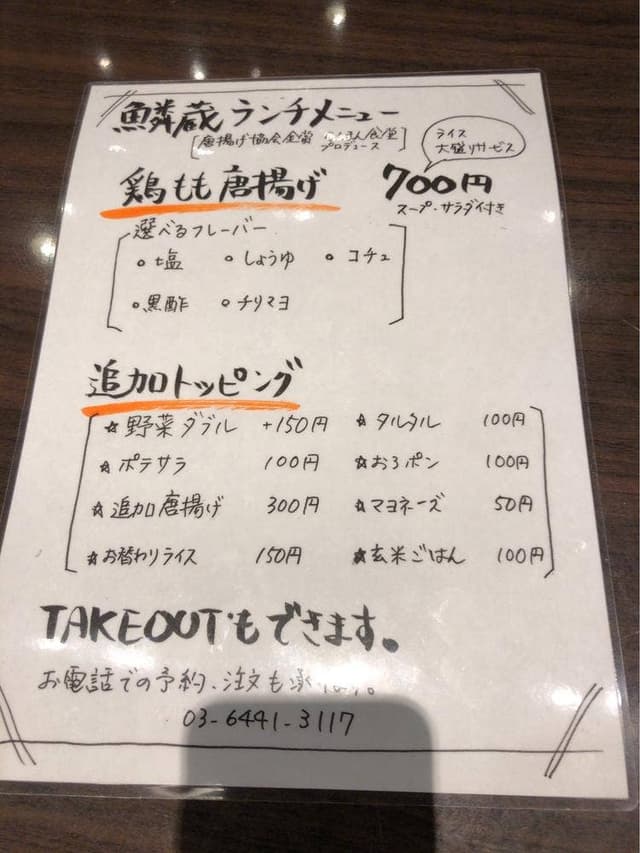 鱗蔵 ランチメニュー
[唐揚げ協会金賞 食堂
プロデュース]
ライス
大盛りサービス
鶏もも唐揚げ 700円
スープ・サラダ付き
選べるフレーバー
○塩 ○しょうゆ ○コチュ
○黒酢 ○チリマヨ
追加トッピング
☆野菜ダブル +150円 ☆タルタル 100円
☆ポテサラ 100円 ☆おろポン 100円
☆追加唐揚げ 300円 ☆マヨネーズ 50円
☆お替わりライス 150円 ☆玄米ごはん 100円
TAKEOUTもできます。
お電話での予約、注文も
03-6441-3117